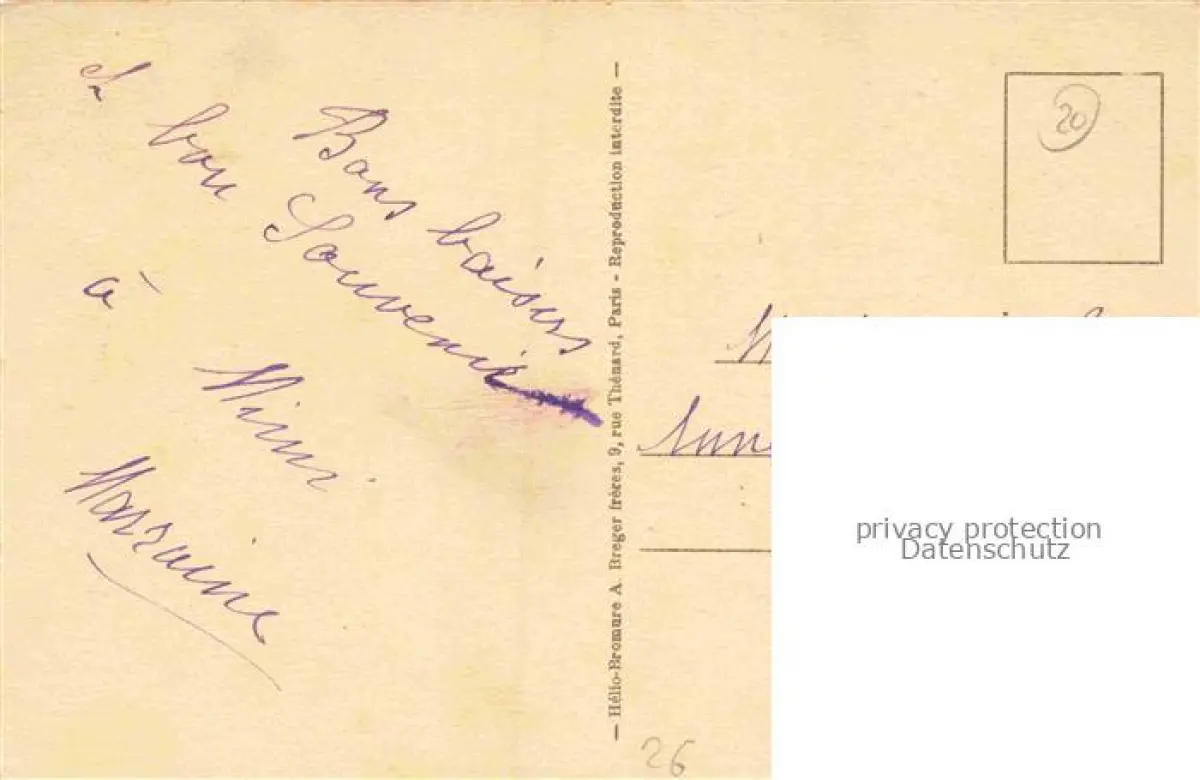 Bons baisers
et bon Souvenir
à Mimi
Marraine
— Hélio-Bromure A. Breger frères, 9, rue Thénard, Paris - Reproduction interdite —
20
26
privacy protection
Datenschutz